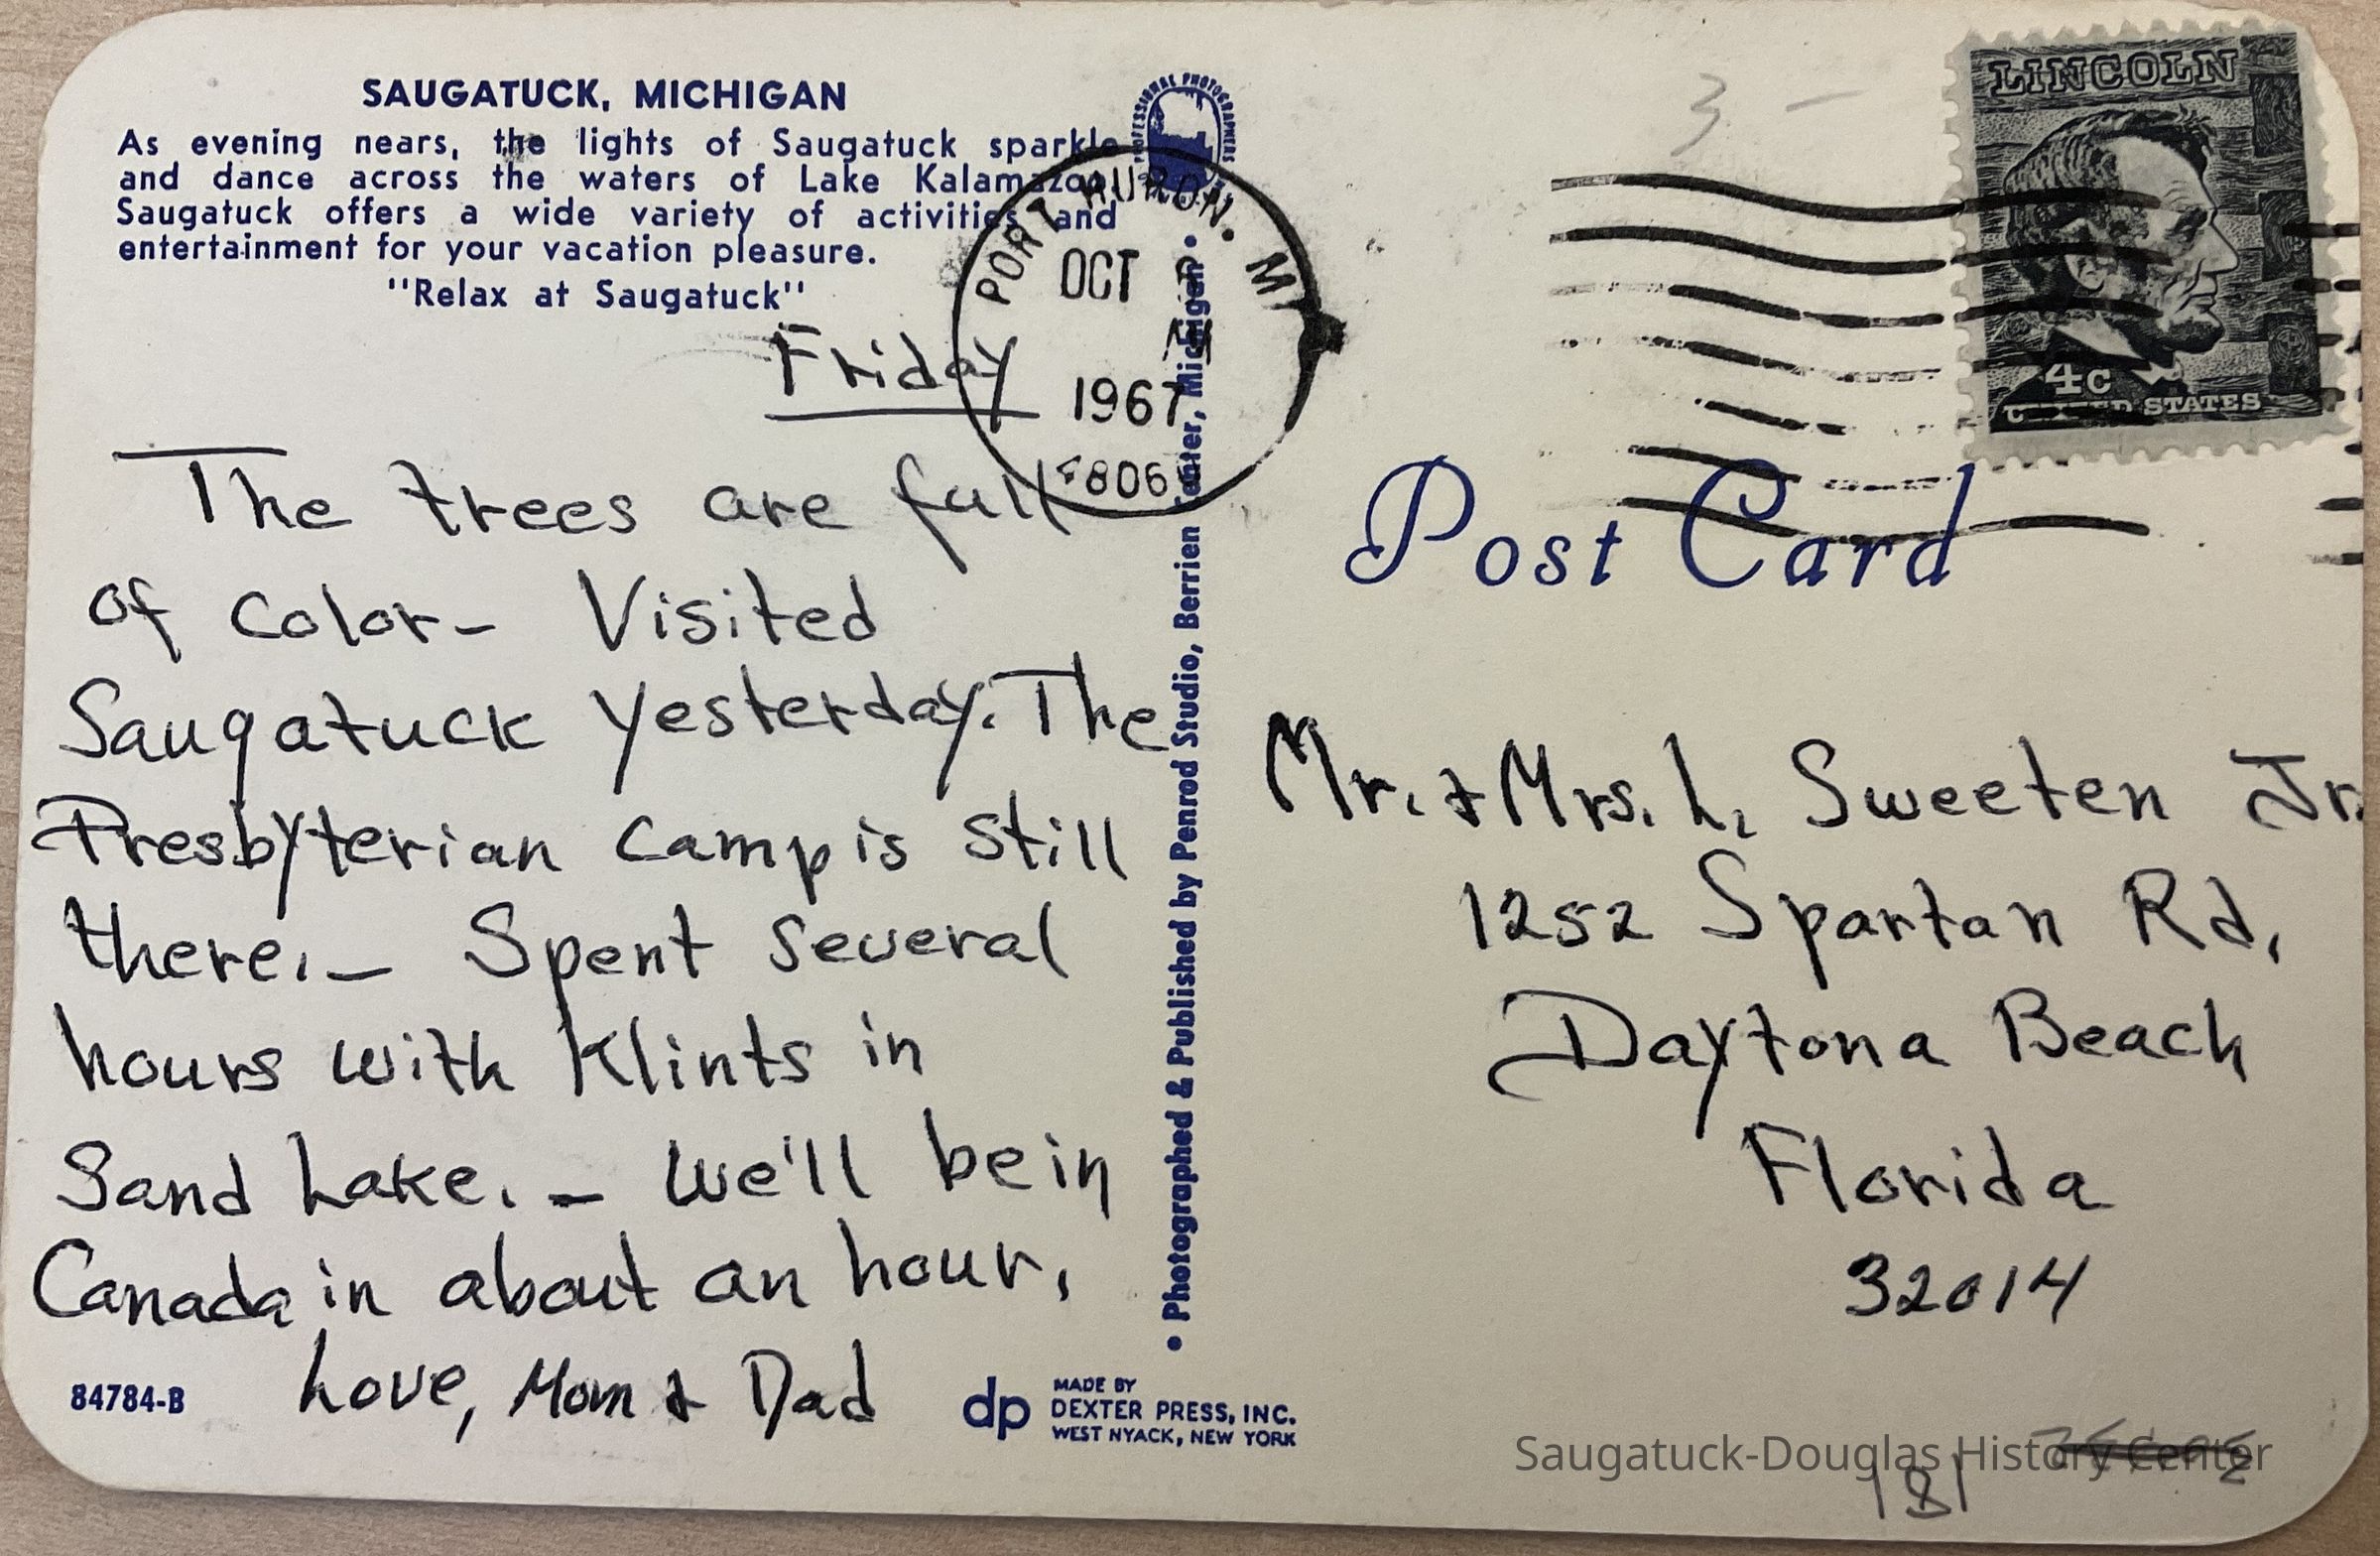 SAUGATUCK, MICHIGAN
As evening nears, the lights of Saugatuck sparkle
and dance across the waters of Lake Kalamazoo.
Saugatuck offers a wide variety of activities and
entertainment for your vacation pleasure.
"Relax at Saugatuck"
Friday
The trees are full
of color- Visited
Saugatuck yesterday. The
Presbyterian camp is still
there. - Spent several
hours with Klints in
Sand Lake. - We'll be in
Canada in about an hour.
Love, Mom & Dad
84784-B
dp
MADE BY
DEXTER PRESS, INC.
WEST NYACK, NEW YORK
• Photographed & Published by Penrod Studio, Berrien Center, Michigan •
PROFESSIONAL PHOTOGRAPHERS
PORT HURON, MI
OCT
1967
4806
3 -
LINCOLN
4c
UNITED STATES
Post Card
Mr. & Mrs. L. Sweeten Jr.
1252 Spartan Rd,
Daytona Beach
Florida
32014
Saugatuck-Douglas History Center
181